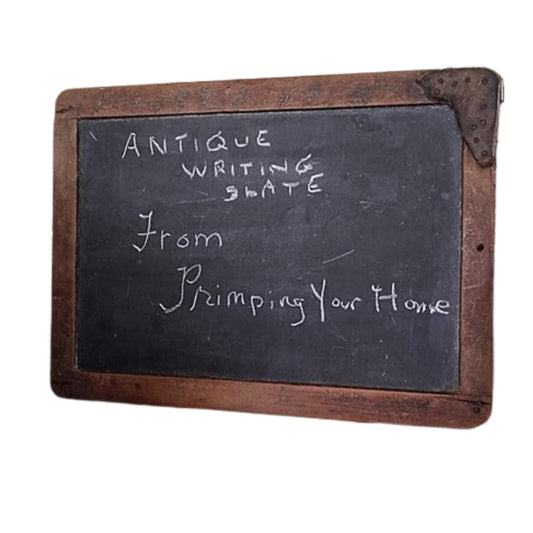 ANTIQUE
WRITING
SLATE
From
Primping Your Home